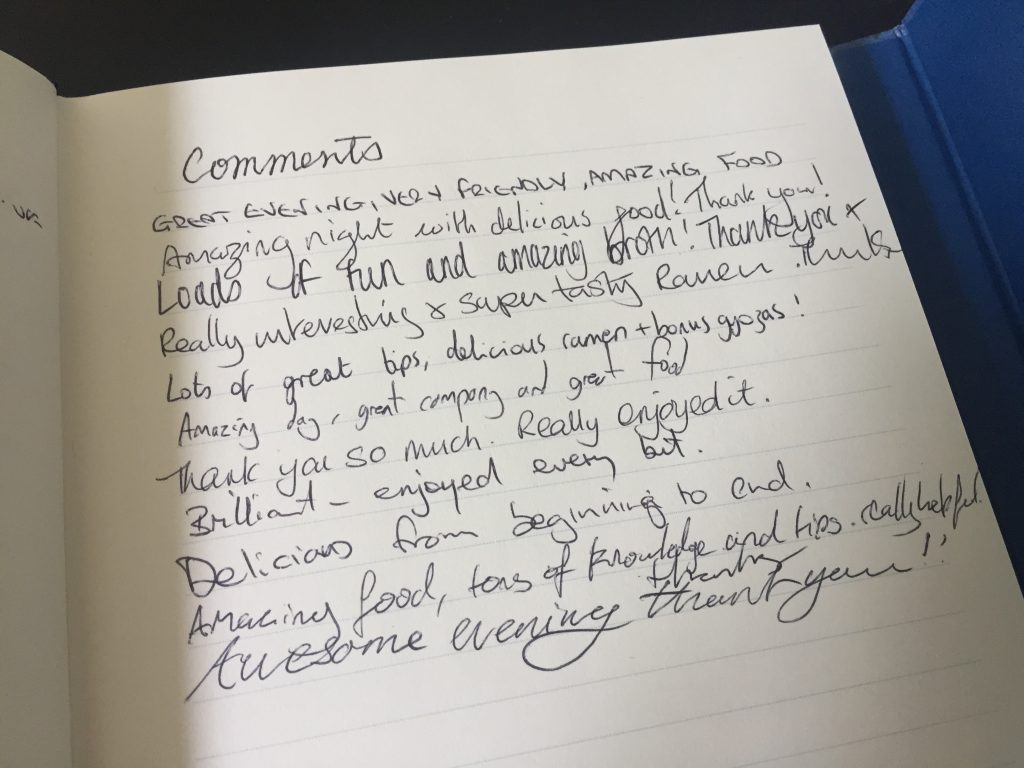 Comments
GREAT EVENING, VERY FRIENDLY, AMAZING FOOD
Amazing night with delicious food! Thank you!
Loads of fun and amazing! Thank you x
Really interesting & super tasty Ramen. Thanks
Lots of great tips, delicious ramen + bonus gyozas!
Amazing day, great company and great food
Thank you so much. Really enjoyed it.
Brilliant - enjoyed every bit.
Delicious from beginning to end.
Amazing food, tons of knowledge and tips. really helpful.
thanks
Awesome evening thank you!!